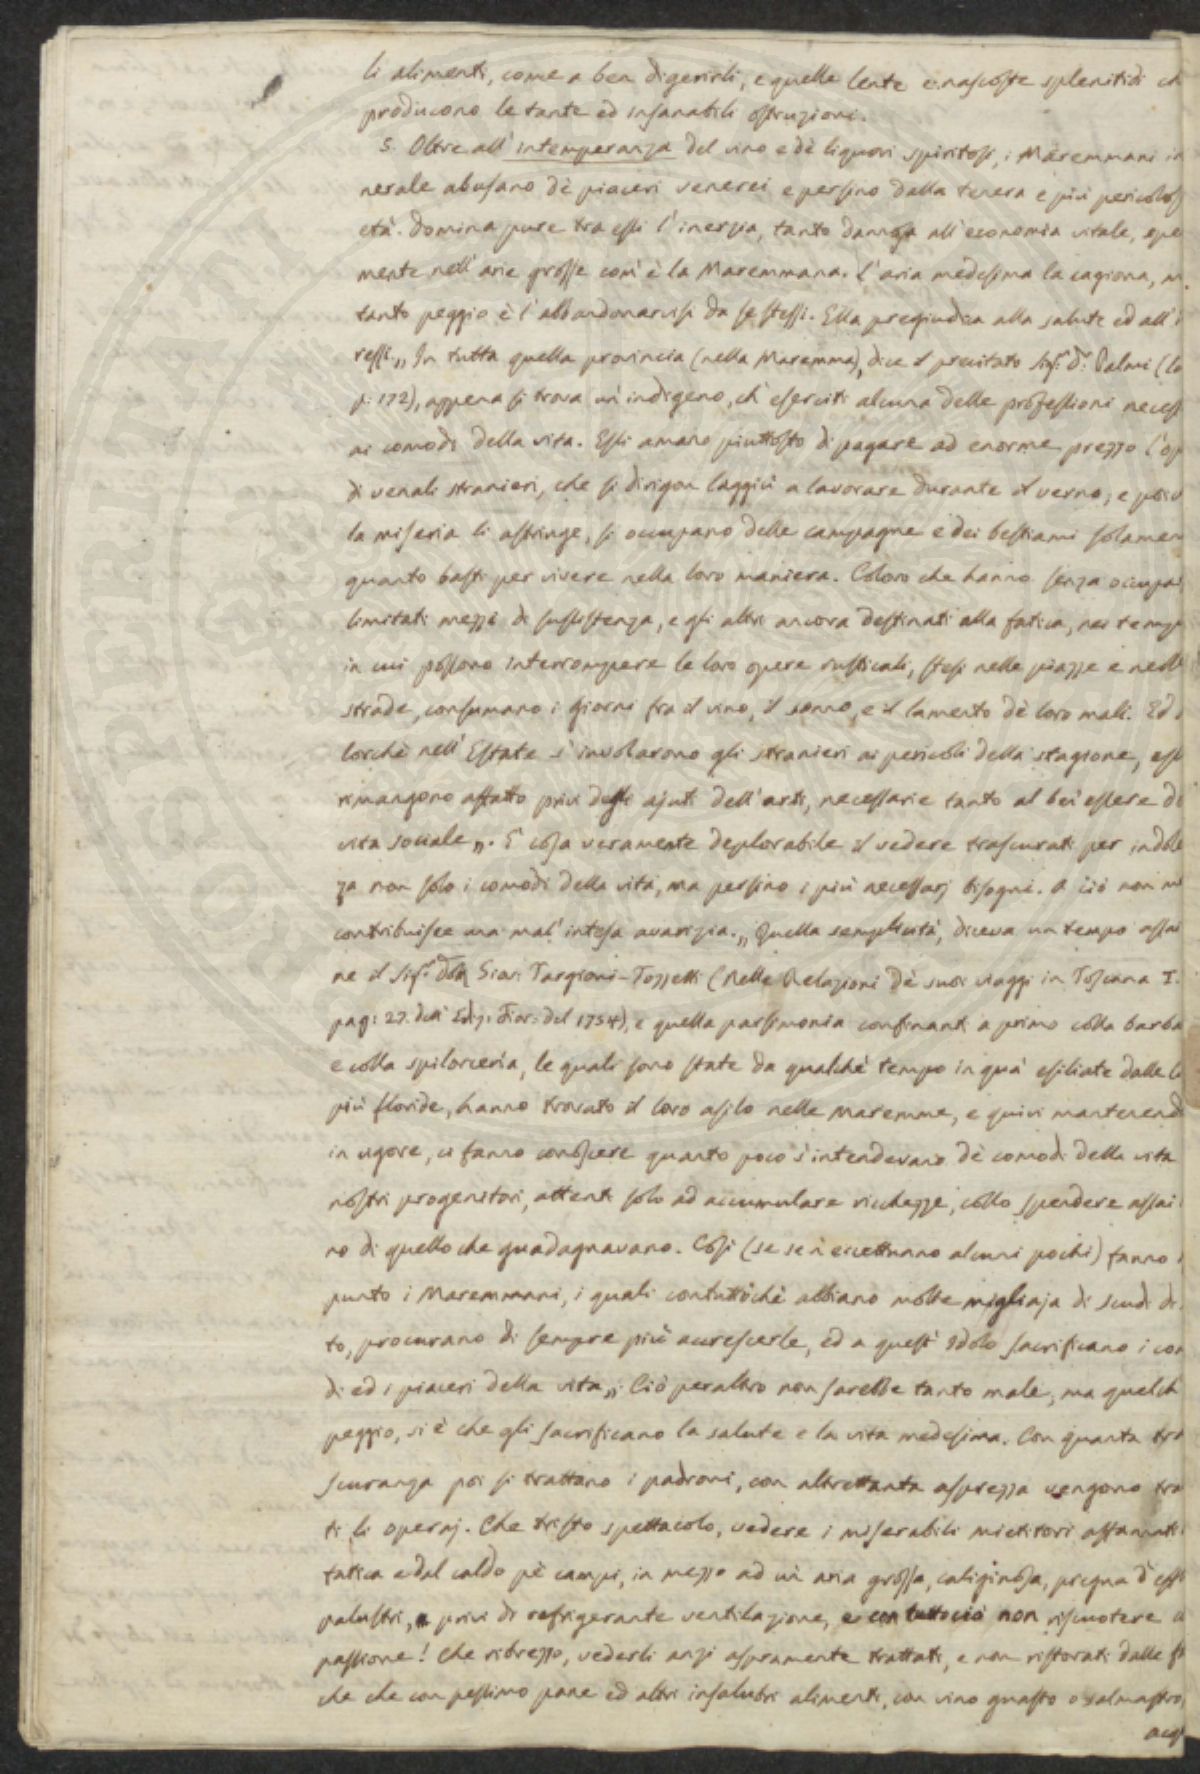 li alimenti, come a ben digerirli, e quelle lente e nascoste splenitidi ch
producono le tante ed insanabili ostruzioni.
5. Oltre all' intemperanza del vino e dè liquori spiritosi, i Maremmani in
nerale abusano dè piaceri venerei e persino dalla tenera e più pericolos
età. Domina pure tra essi l'inerzia, tanto dannosa all'economia vitale, spe
mente nell'arie grosse com' è la Maremmana. L'aria medesima la cagiona, m
tanto peggio è l'abbandonarvisi da se stessi. Ella pregiudica alla salute ed all'i
ressi. „ In tutta quella provincia (nella Maremma), dice il precitato Sigr. Dr. Palmi (lo
p: 172), appena si trova un' indigeno, ch' eserciti alcuna delle professioni necess
ai comodi della vita. Essi amano piuttosto di pagare ad enorme prezzo l'op
di venali stranieri, che si dirigon laggiù a lavorare durante il verno; e
la miseria li astringe, si occupano delle campagne e dei bestiami solamen
quanto basti per vivere nella loro maniera. Coloro che hanno senza occupa
limitati mezzi di sussistenza, e gli altri ancora destinati alla fatica, nei temp
in cui possono interrompere le loro opere rusticali, stesi nelle piazze e nelle
strade, consumano i giorni fra il vino, il sonno, e il lamento dè loro mali. Ed
lorchè nell'Estate s'involarono gli stranieri ai pericoli della stagione, essi
rimangono affatto privi degli ajuti dell'arti, necessarie tanto al ben' essere de
vita sociale „. È cosa veramente deplorabile il vedere trascurati per indole
za non solo i comodi della vita, ma persino i più necessarj bisogni. A ciò non m
contribuisce una mal' intesa avarizia. „ Quella semplicità, diceva un tempo assai
ne il Sigr. Dottr Giov: Targioni-Tozzetti (Nelle Relazioni dè suoi viaggi in Toscana T.
pag: 27. dell' Ediz: Fior: del 1754), e quella parsimonia confinanti a primo colla barba
e colla spilorceria, le quali sono state da qualchè tempo in quà esiliate dalle
più floride, hanno trovato il loro asilo nelle Maremme, e quivi mantenend
in vigore, ci fanno conoscere quanto poco s'intendevano dè comodi della vita
nostri progenitori, attenti solo ad accumulare ricchezze, collo spendere assai
no di quello che guadagnavano. Così (se se n'eccettuano alcuni pochi) fanno
punto i Maremmani, i quali contuttochè abbiano molte migliaja di scudi di
to, procurano di sempre più accrescerle, ed a quest' Idolo sacrificano i com
di ed i piaceri della vita „. Ciò peraltro non sarebbe tanto male; ma quelch
peggio, si è che gli sacrificano la salute e la vita medesima. Con quanta tra
scuranza poi si trattano i padroni, con altrettanta asprezza vengono tra
ti li operaj. Che tristo spettacolo, vedere i miserabili mietitori affannati
fatica e dal caldo pè campi, in mezzo ad un' aria grossa, caliginosa, pregna d'eff
palustri, privi di refrigerante ventilazione, e con tuttociò non riscuotere
passione! Che ribrezzo, vederli anzi aspramente trattati, e non ristorati dalle
che che con pessimo pane ed altri insalubri alimenti, con vino guasto o salmastro,
acq